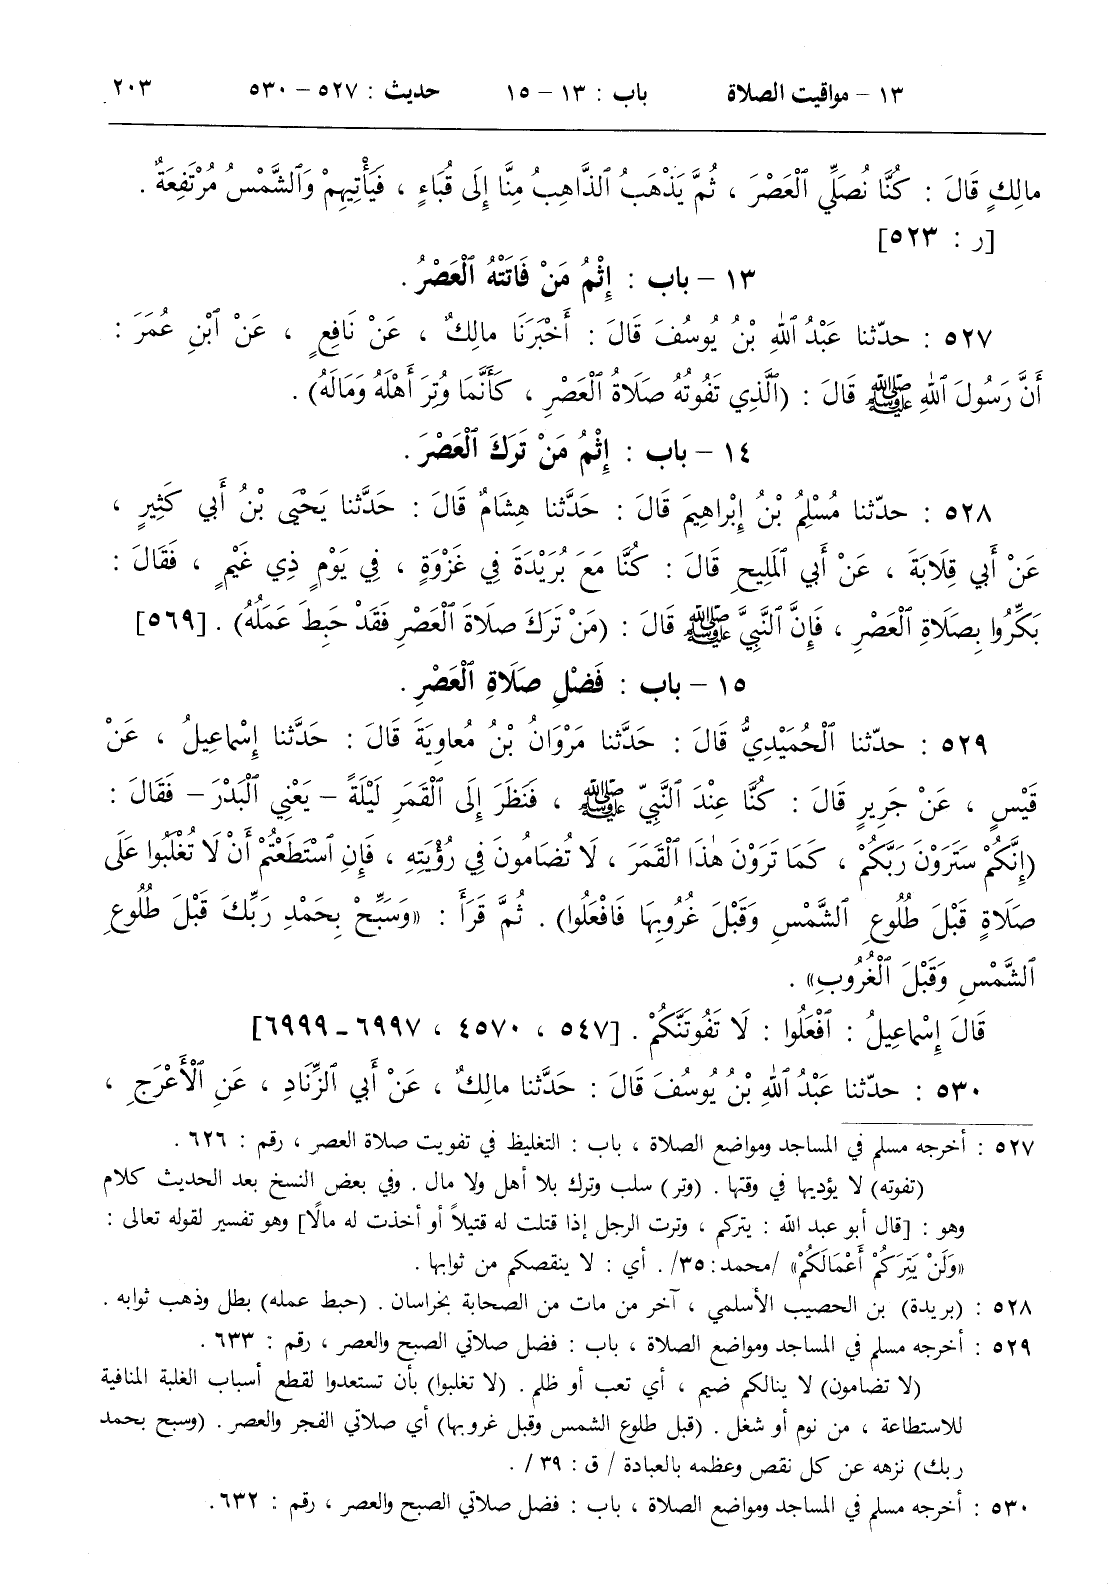 ١٣ – مواقيت الصلاة باب : ١٣ – ١٥ حديث : ٥٢٧ – ٥٣٠ ٢٠٣
مالِكٍ قَالَ : كُنَّا نُصَلِّي ٱلْعَصْرَ ، ثُمَّ يَذْهَبُ ٱلذَّاهِبُ مِنَّا إِلَى قُبَاءٍ ، فَيَأْتِيهِمْ وَٱلشَّمْسُ مُرْتَفِعَةٌ .
[ر : ٥٢٣]
١٣ – باب : إِثْمُ مَنْ فَاتَتْهُ ٱلْعَصْرُ .
٥٢٧ : حدّثنا عَبْدُ ٱللهِ بْنُ يُوسُفَ قَالَ : أَخْبَرَنَا مالِكٌ ، عَنْ نَافِعٍ ، عَنْ ٱبْنِ عُمَرَ :
أَنَّ رَسُولَ ٱللهِ ﷺ قَالَ : (ٱلَّذِي تَفُوتُهُ صَلَاةُ ٱلْعَصْرِ ، كَأَنَّمَا وُتِرَ أَهْلَهُ وَمَالَهُ) .
١٤ – باب : إِثْمُ مَنْ تَرَكَ ٱلْعَصْرَ .
٥٢٨ : حدّثنا مُسْلِمُ بْنُ إِبْراهِيمَ قَالَ : حَدَّثَنا هِشَامٌ قَالَ : حَدَّثَنا يَحْيَى بْنُ أَبي كَثِيرٍ ،
عَنْ أَبي قِلَابَةَ ، عَنْ أَبي ٱلمَلِيحِ قَالَ : كُنَّا مَعَ بُرَيْدَةَ فِي غَزْوَةٍ ، فِي يَوْمٍ ذِي غَيْمٍ ، فَقَالَ :
بَكِّرُوا بِصَلَاةِ ٱلْعَصْرِ ، فَإِنَّ ٱلنَّبِيَّ ﷺ قَالَ : (مَنْ تَرَكَ صَلَاةَ ٱلْعَصْرِ فَقَدْ حَبِطَ عَمَلُهُ) . [٥٦٩]
١٥ – باب : فَضْلِ صَلَاةِ ٱلْعَصْرِ .
٥٢٩ : حدّثنا ٱلْحُمَيْدِيُّ قَالَ : حَدَّثَنا مَرْوَانُ بْنُ مُعاوِيَةَ قَالَ : حَدَّثَنا إِسْماعِيلُ ، عَنْ
قَيْسٍ ، عَنْ جَرِيرٍ قَالَ : كُنَّا عِنْدَ ٱلنَّبِيِّ ﷺ ، فَنَظَرَ إِلَى ٱلْقَمَرِ لَيْلَةً – يَعْنِي ٱلْبَدْرَ – فَقَالَ :
(إِنَّكُمْ سَتَرَوْنَ رَبَّكُمْ ، كَمَا تَرَوْنَ هٰذَا ٱلْقَمَرَ ، لَا تُضَامُونَ فِي رُؤْيَتِهِ ، فَإِنِ ٱسْتَطَعْتُمْ أَنْ لَا تُغْلَبُوا عَلَى
صَلَاةٍ قَبْلَ طُلُوعِ ٱلشَّمْسِ وَقَبْلَ غُرُوبِهَا فَافْعَلُوا) . ثُمَّ قَرَأَ : «وَسَبِّحْ بِحَمْدِ رَبِّكَ قَبْلَ طُلُوعِ
ٱلشَّمْسِ وَقَبْلَ ٱلْغُرُوبِ» .
قَالَ إِسْماعِيلُ : ٱفْعَلُوا : لَا تَفُوتَنَّكُمْ . [٥٤٧ ، ٤٥٧٠ ، ٦٩٩٧ – ٦٩٩٩]
٥٣٠ : حدّثنا عَبْدُ ٱللهِ بْنُ يُوسُفَ قَالَ : حَدَّثَنا مالِكٌ ، عَنْ أَبي ٱلزِّنَادِ ، عَنِ ٱلْأَعْرَجِ ،
٥٢٧ : أخرجه مسلم في المساجد ومواضع الصلاة ، باب : التغليظ في تفويت صلاة العصر ، رقم : ٦٢٦ .
(تفوته) لا يؤديها في وقتها . (وتر) سلب وترك بلا أهل ولا مال . وفي بعض النسخ بعد الحديث كلام
وهو : [قال أبو عبد الله : يتركم ، وترت الرجل إذا قتلت له قتيلاً أو أخذت له مالًا] وهو تفسير لقوله تعالى :
«وَلَنْ يَتِرَكُمْ أَعْمَالَكُمْ» /محمد: ٣٥/ . أي : لا ينقصكم من ثوابها .
٥٢٨ : (بريدة) بن الحصيب الأسلمي ، آخر من مات من الصحابة بخراسان . (حبط عمله) بطل وذهب ثوابه .
٥٢٩ : أخرجه مسلم في المساجد ومواضع الصلاة ، باب : فضل صلاتي الصبح والعصر ، رقم : ٦٣٣ .
(لا تضامون) لا ينالكم ضيم ، أي تعب أو ظلم . (لا تغلبوا) بأن تستعدوا لقطع أسباب الغلبة المنافية
للاستطاعة ، من نوم أو شغل . (قبل طلوع الشمس وقبل غروبها) أي صلاتي الفجر والعصر . (وسبح بحمد
ربك) نزهه عن كل نقص وعظمه بالعبادة / ق : ٣٩ / .
٥٣٠ : أخرجه مسلم في المساجد ومواضع الصلاة ، باب : فضل صلاتي الصبح والعصر ، رقم : ٦٣٢ .